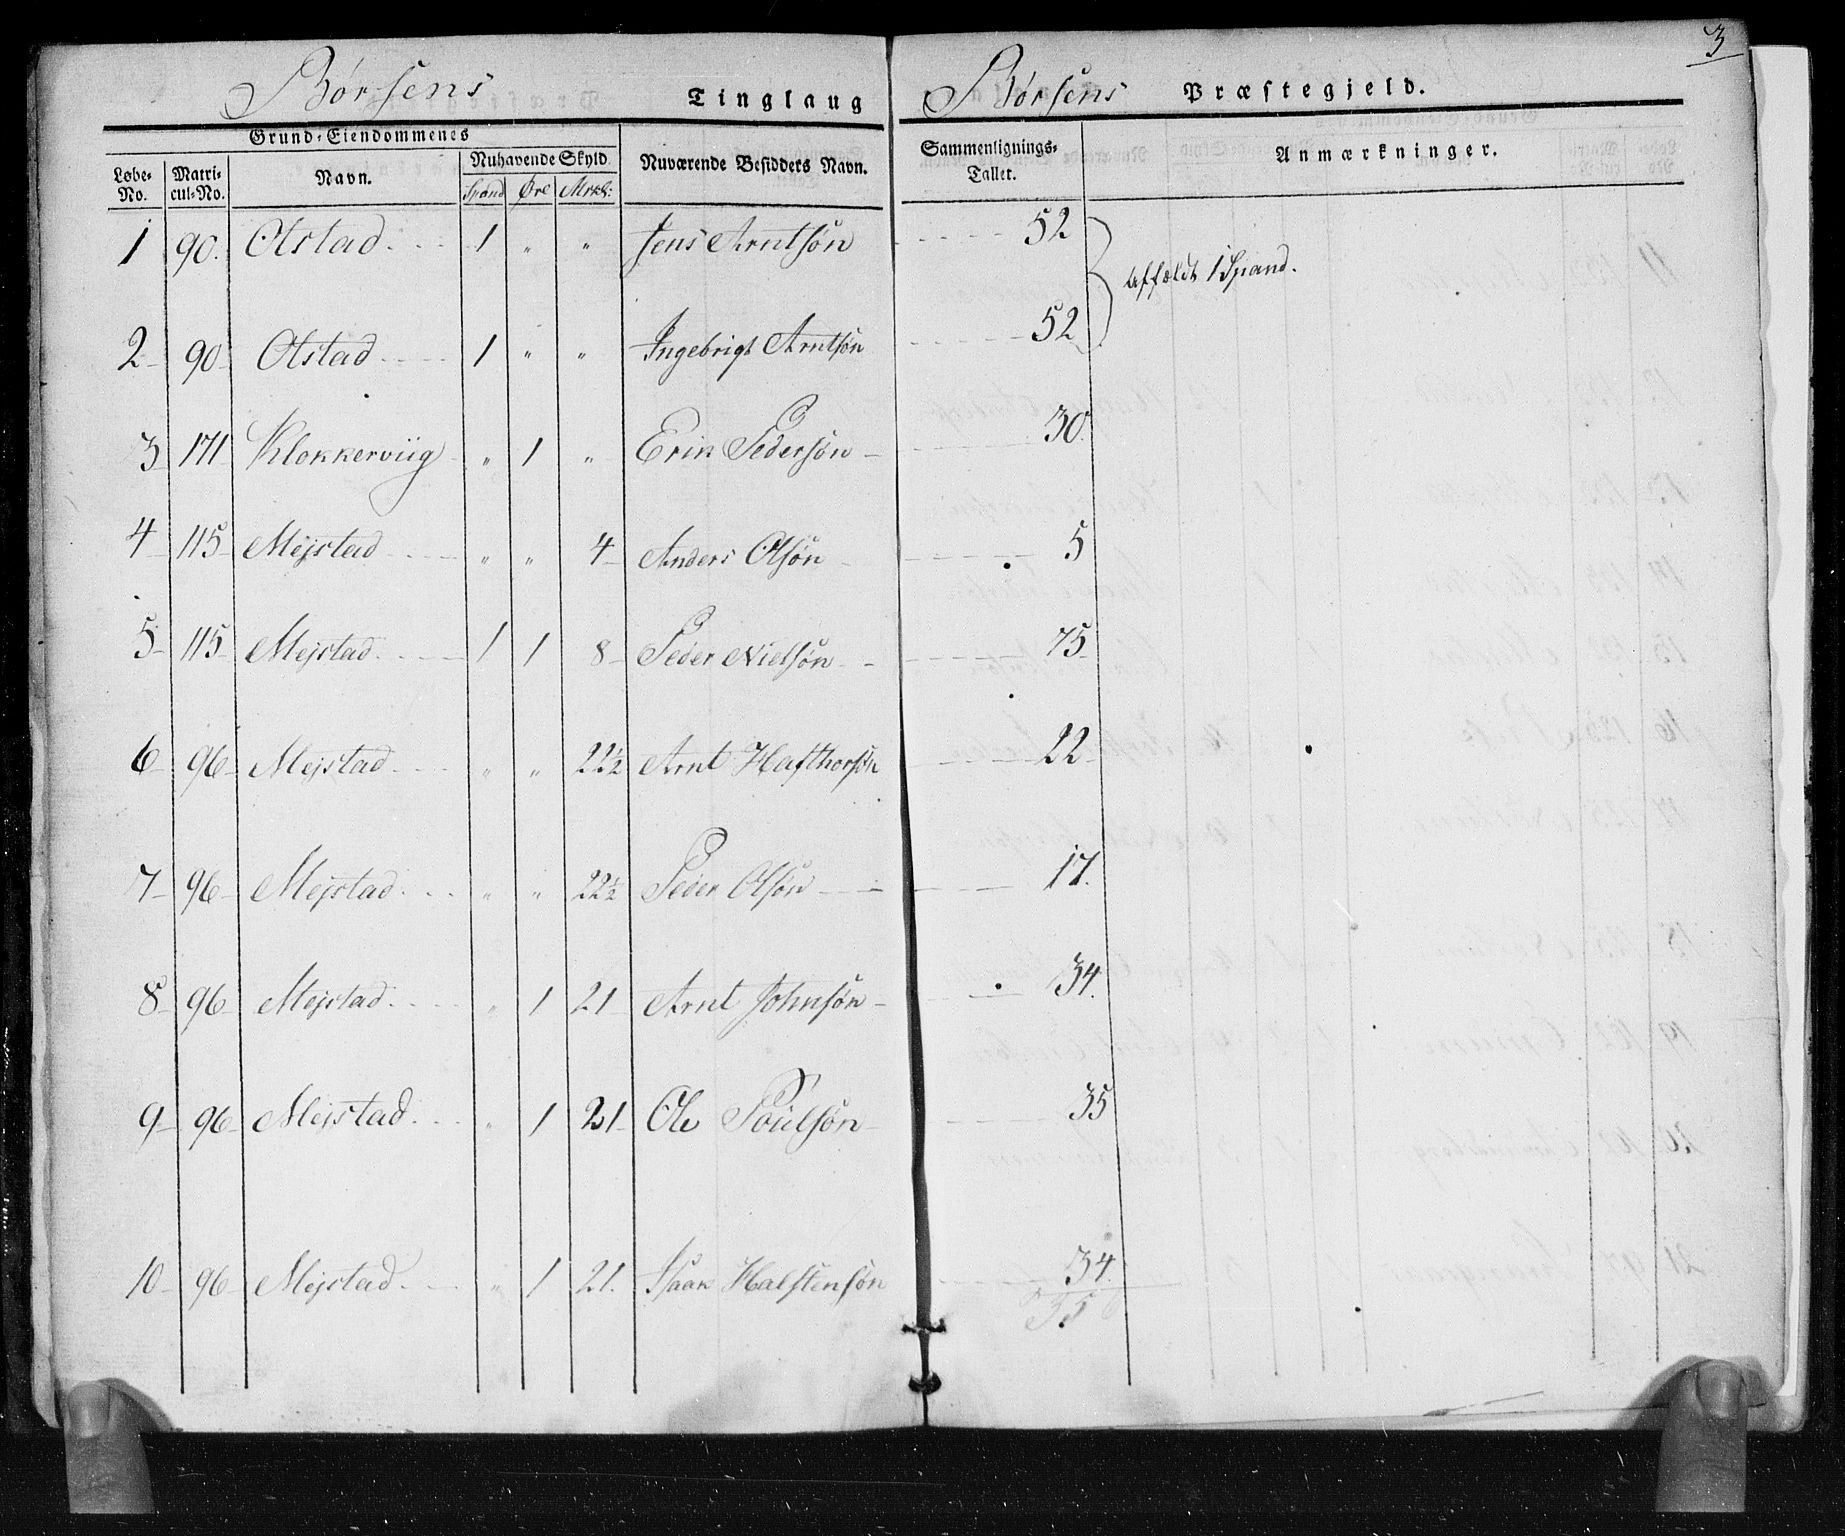 3
Børsens Tinglaug Børsens Præstegjeld.
Grund-Eiendommenes
Løbe-No. Matricul-No. Navn. Nuhavende Skyld. Nuværende Besidders Navn. Sammenlignings-Tallet. Anmærkninger.
Spand Øre Mrkl:
1 90. Olstad 1 " " Jens Arntsøn 52
Affældt 1 Spand.
2 90 Olstad 1 " " Ingebrigt Arntsøn 52
3 171 Klokkerviig " 1 " Erik Pedersøn 30.
4 115 Mejstad " " 4 Anders Olsøn 5
5 115 Mejstad 1 1 8 Peder Nielsøn 75
6 96 Mejstad " " 22½ Arnt Hafthorsøn 22
7 96 Mejstad " " 22½ Peder Olsøn 17.
8 96 Mejstad " 1 21 Arnt Johnsøn 34.
9 96 Mejstad " 1 21 Ole Poulsøn 35
10 96 Mejstad " 1 21. Isaak Halstensøn 34.
35